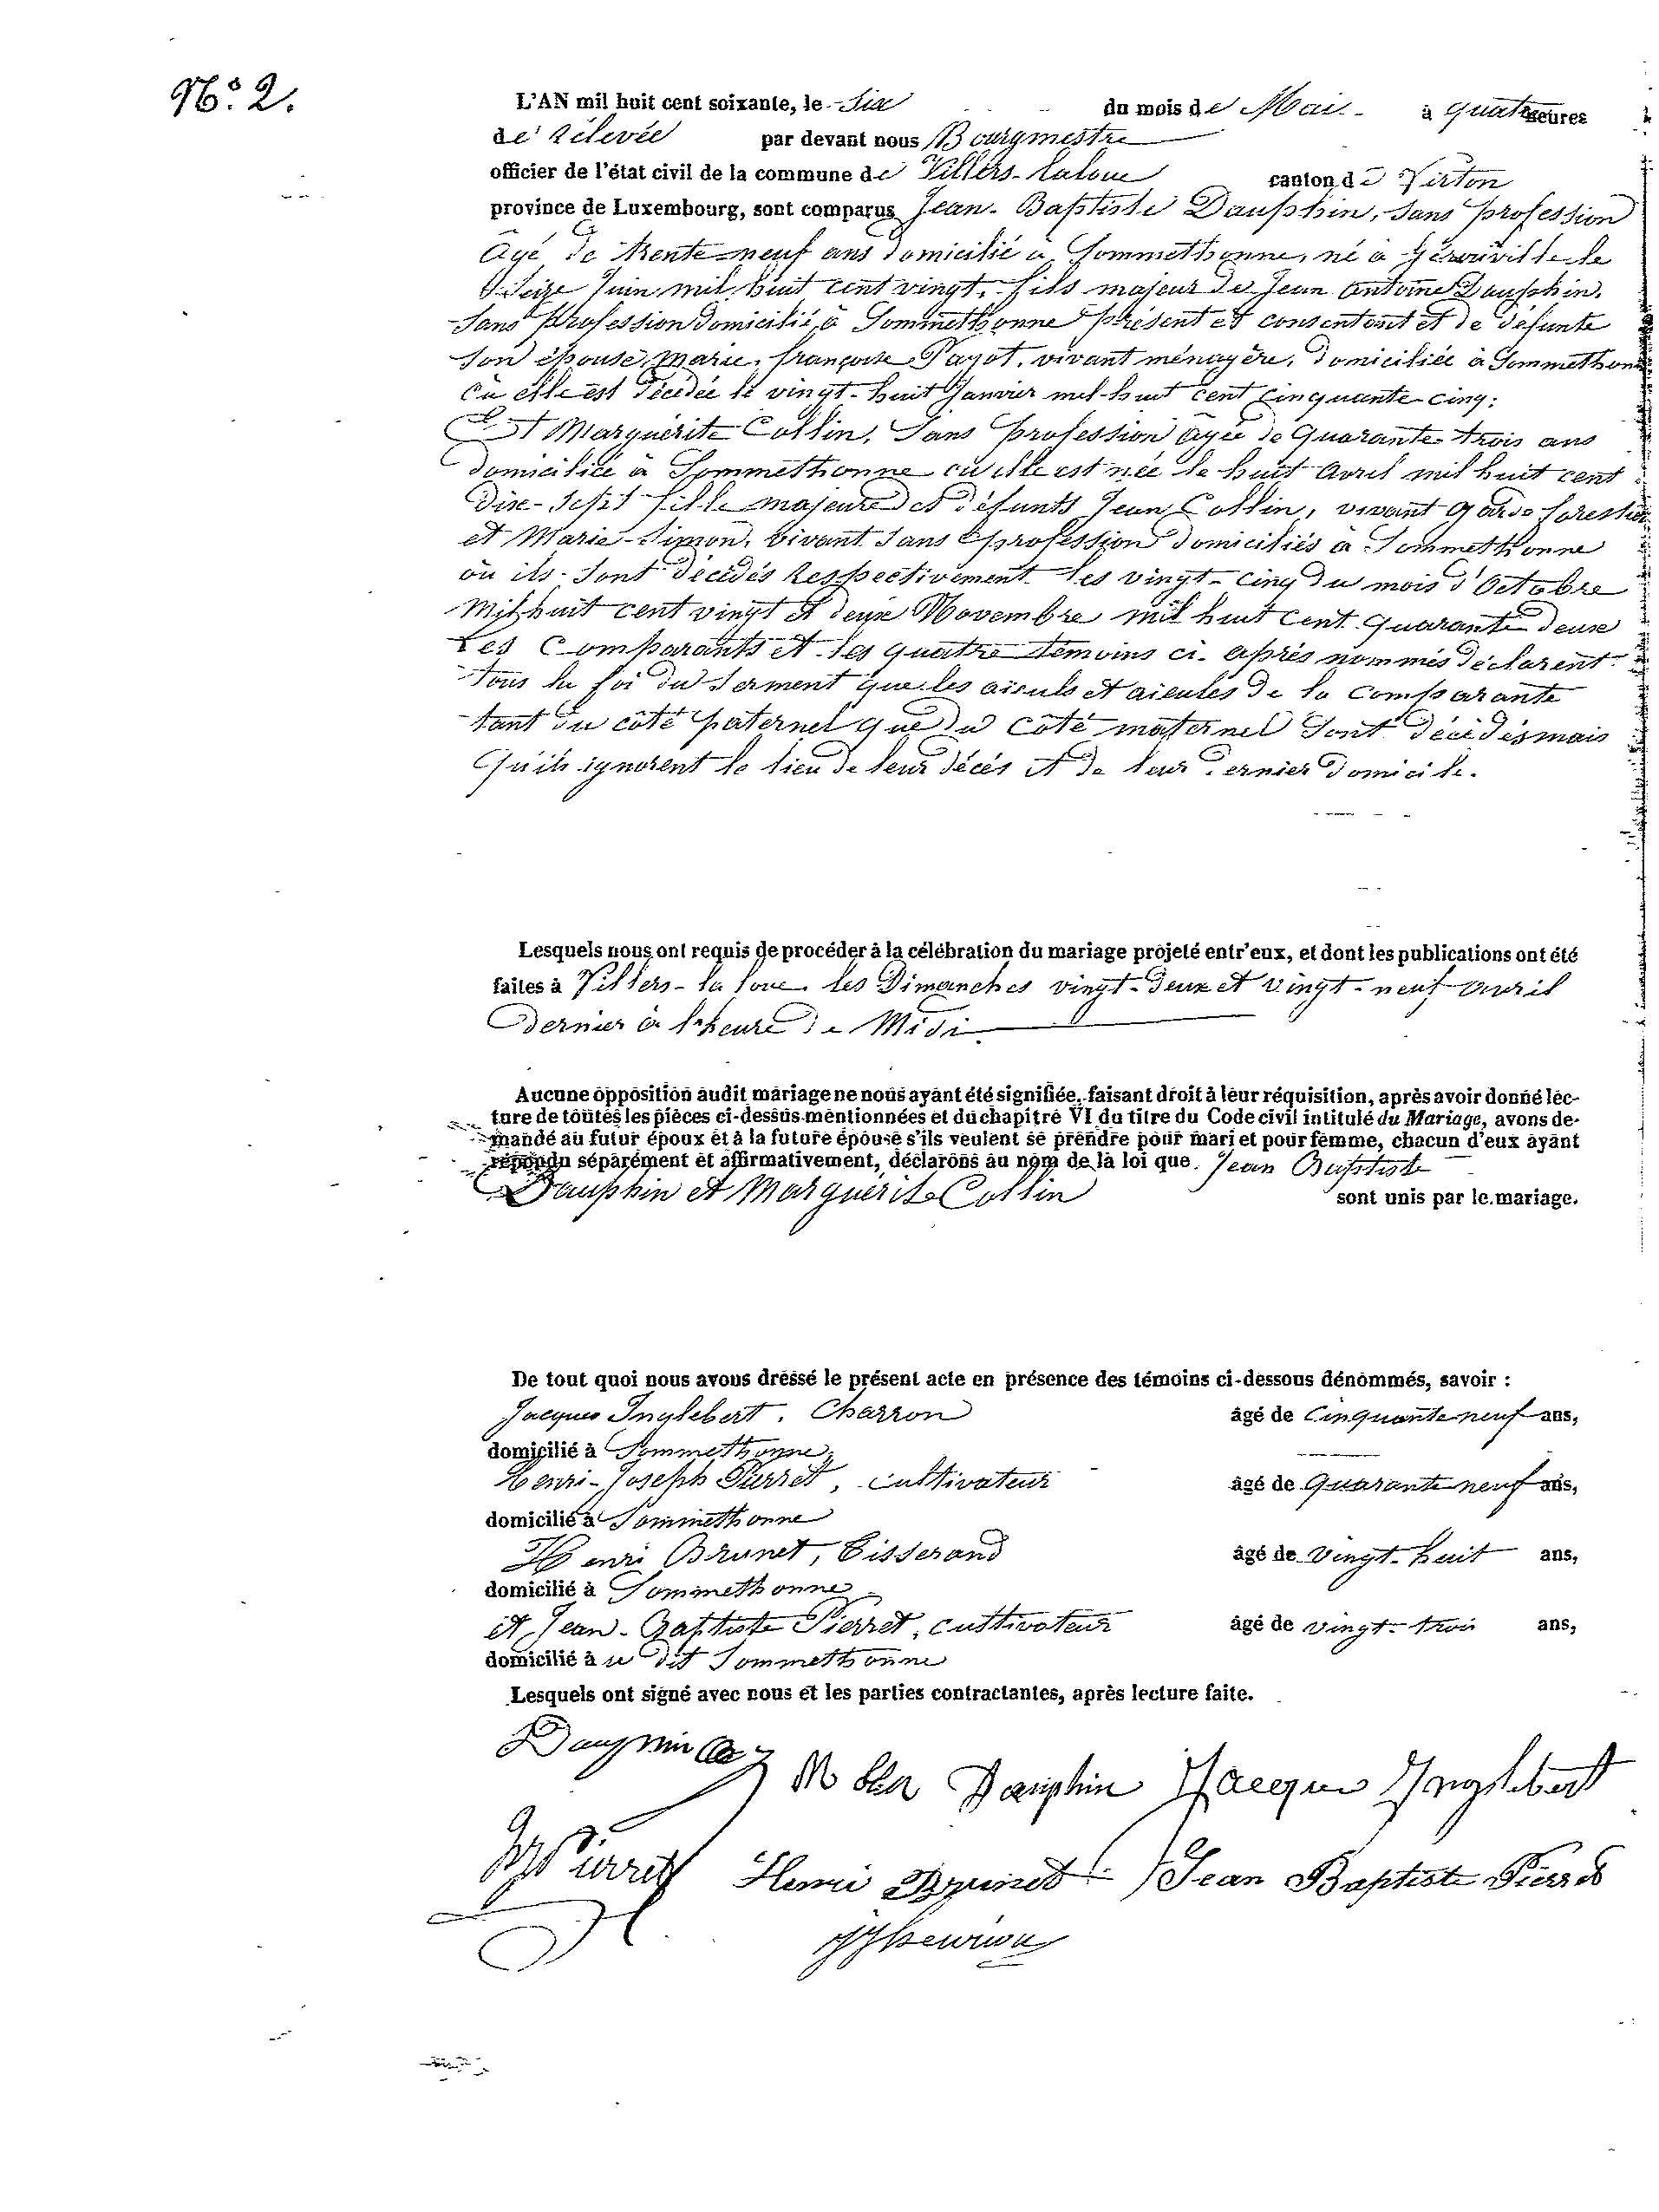 N.º 2.
L'AN mil huit cent soixante, le Six du mois de Mai à quatre heures
de rélevée par devant nous Bourgmestre
officier de l'état civil de la commune de Villers-laloue canton de Virton
province de Luxembourg, sont comparus Jean-Baptiste Dauphin, sans profession
âgé de trente-neuf ans domicilié à Sommethonne, né à Gérouville le
Seize Juin mil huit cent vingt, fils majeur de Jean Antoine Dauphin,
sans profession domicilié à Sommethonne présent et consentant et de défunte
son épouse, marie, françoise Payot, vivant ménagère, domiciliée à Sommethonne
où elle est décédée le vingt-huit Janvier mil-huit cent cinquante-cinq;
Et Marguérite Collin, sans profession âgée de Quarante-trois ans
domiciliée à Sommethonne où elle est née le huit avril mil huit cent
dix-sept fille majeure des défunts Jean Collin, vivant garde forestier
et Marie Simon, vivant sans profession domiciliés à Sommethonne
où ils sont décédés respectivement les vingt-cinq du mois d'Octobre
mil huit cent vingt et deux Novembre mil huit cent quarante deux
Les Comparants et les quatre témoins ci-après nommés déclarent
tous la foi du serment que les aieuls et aieules de la comparante
tant du côté paternel que du côté maternel sont décédés mais
qu'ils ignorent le lieu de leur décès et de leur dernier domicile.
Lesquels nous ont requis de procéder à la célébration du mariage projeté entr'eux, et dont les publications ont été
faites à Villers-la loue les Dimanches vingt-deux et vingt-neuf avril
dernier à l'heure de Midi.
Aucune opposition audit mariage ne nous ayant été signifiée, faisant droit à leur réquisition, après avoir donné lec-
ture de toutes les pièces ci-dessus mentionnées et du chapitre VI du titre du Code civil intitulé du Mariage, avons de-
mandé au futur époux et à la future épouse s'ils veulent se prendre pour mari et pour femme, chacun d'eux ayant
répondu séparément et affirmativement, déclarons au nom de la loi que Jean Baptiste
Dauphin et Marguérite Collin sont unis par le mariage.
De tout quoi nous avons dressé le présent acte en présence des témoins ci-dessous dénommés, savoir :
Jacques Inglebert, Charron âgé de Cinquante neuf ans,
domicilié à Sommethonne,
Henri-Joseph Pierret, cultivateur âgé de quarante neuf ans,
domicilié à Sommethonne
Henri Brunet, Tisserand âgé de vingt-huit ans,
domicilié à Sommethonne
et Jean-Baptiste Pierret, cultivateur âgé de vingt-trois ans,
domicilié à ce dit Sommethonne
Lesquels ont signé avec nous et les parties contractantes, après lecture faite.
Dauphin
Dauphin Jacques Inglebert
Pierret Henri Brunet Jean Baptiste Pierret